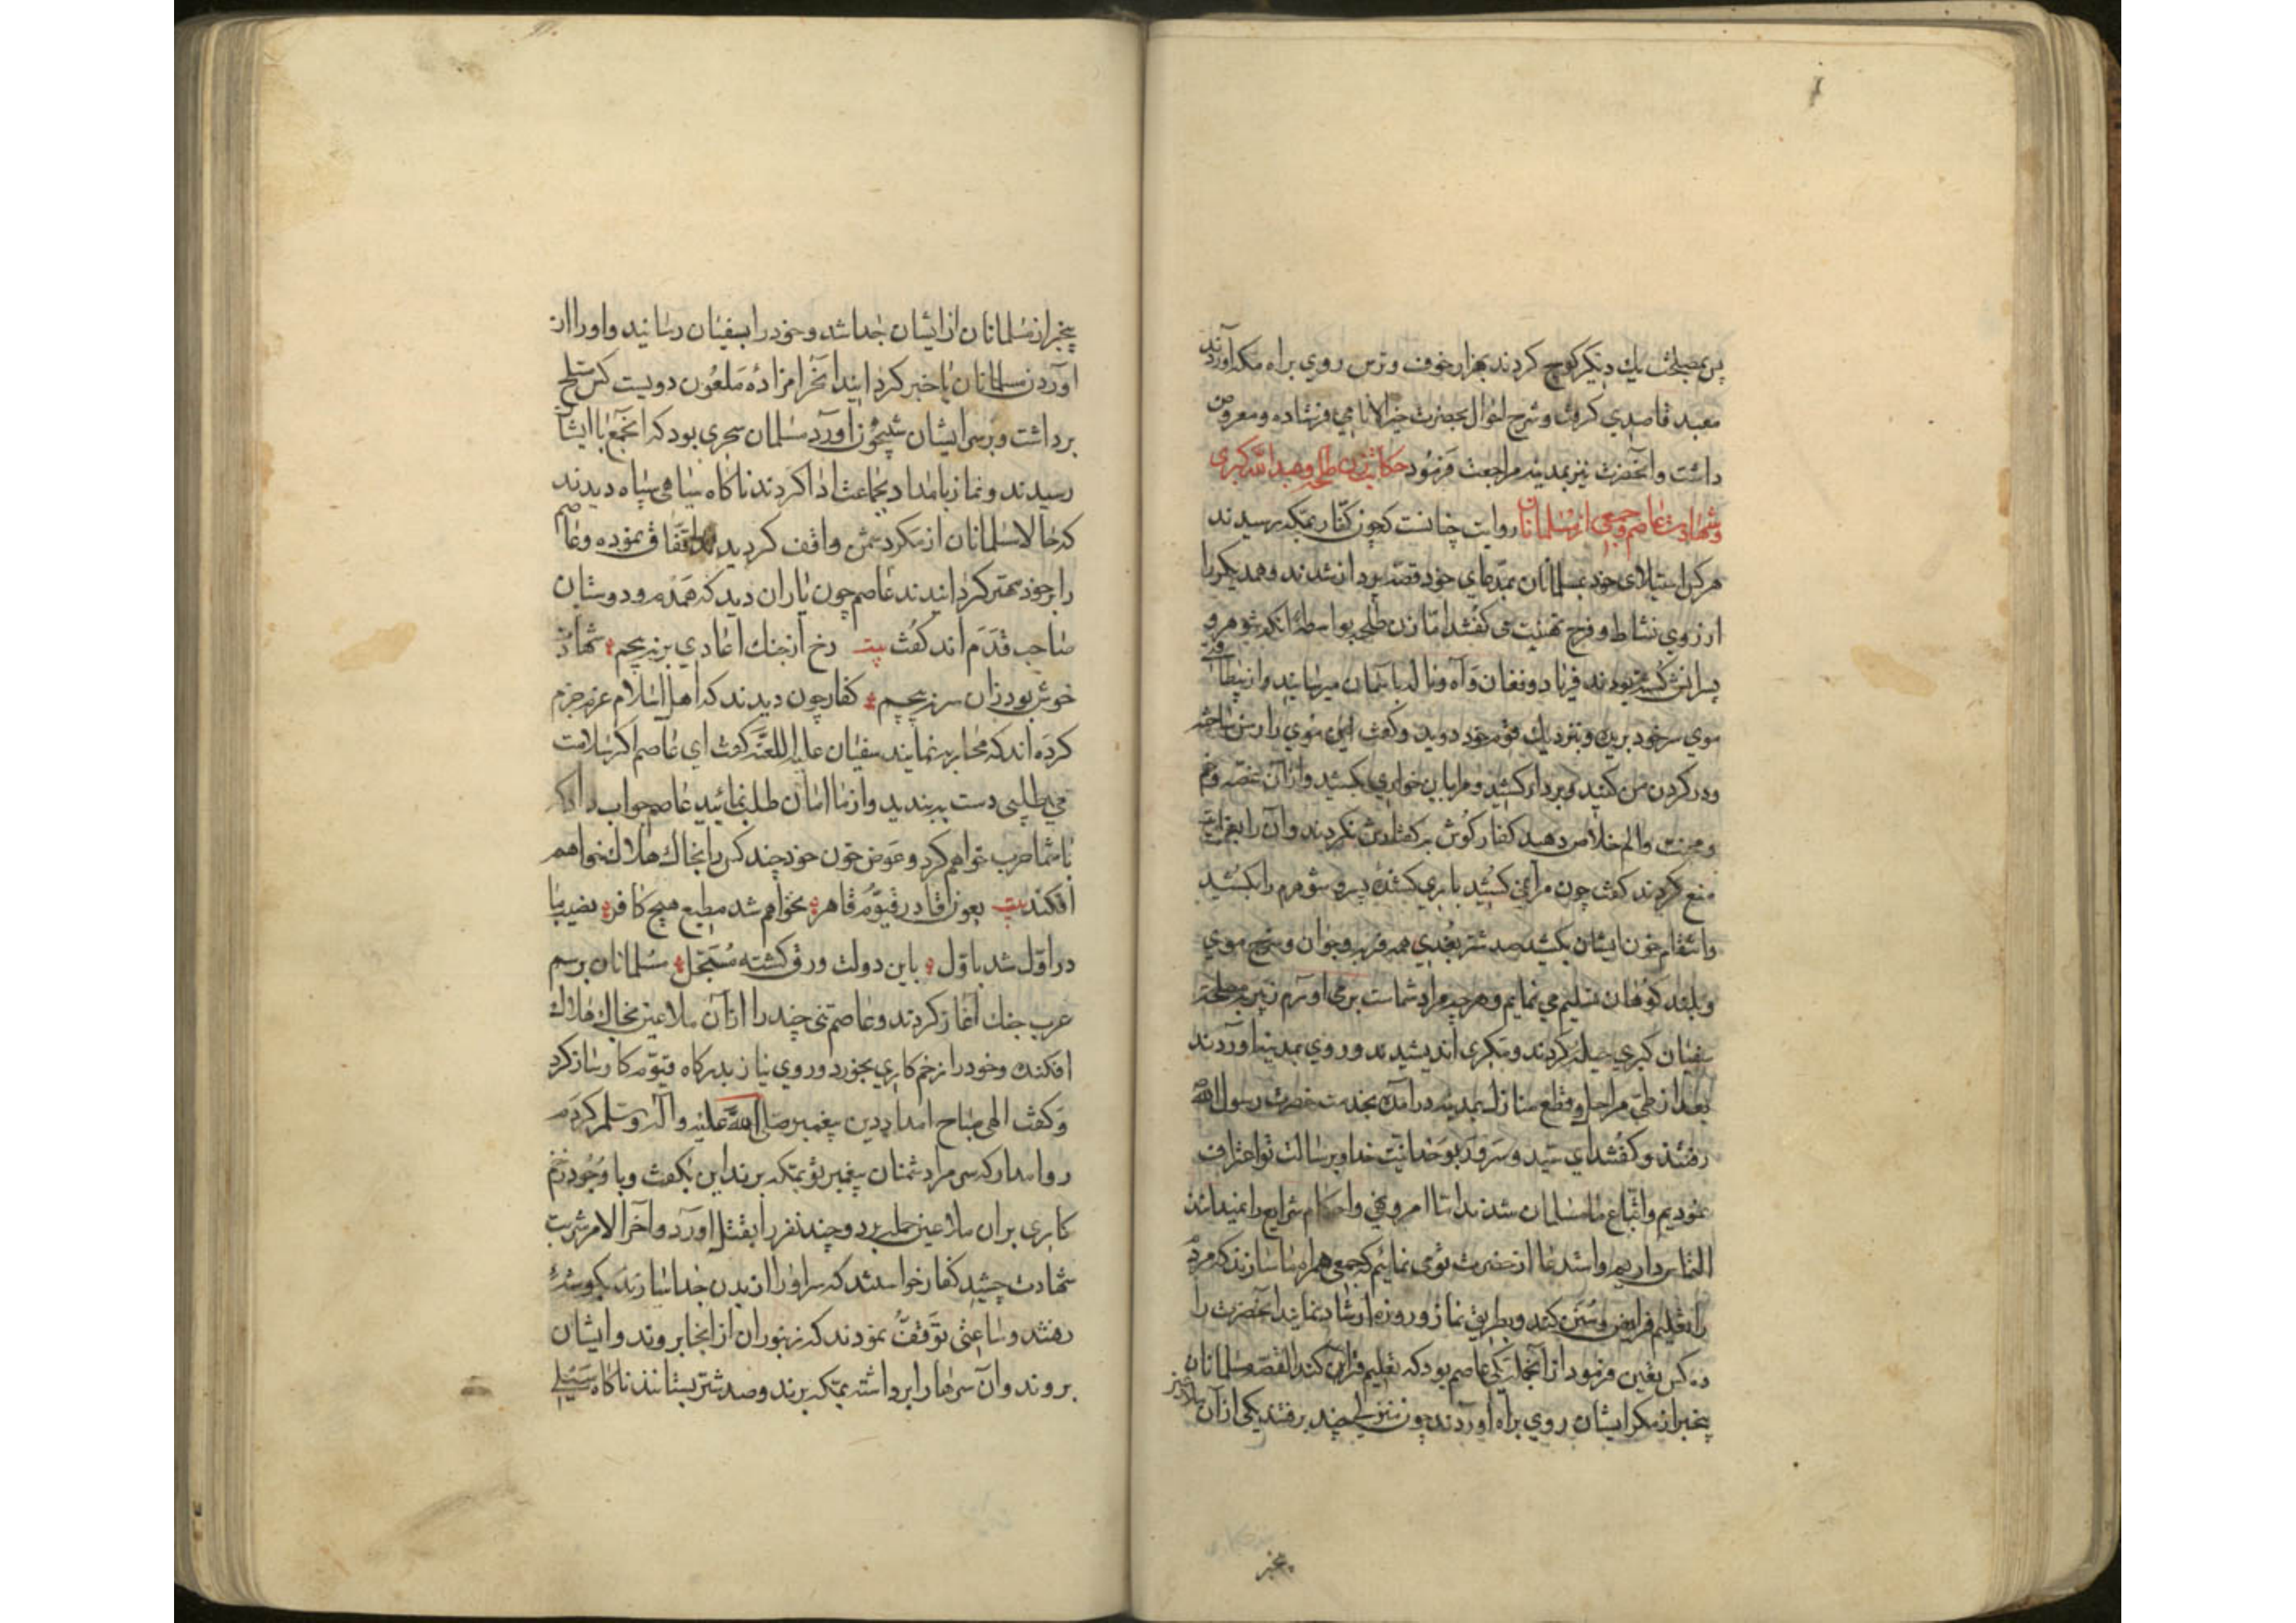 پس بمصلحت یك دیگر کوچ کردند بهزار خوف و ترس روی براه مکه آوردند
معبد قاصدی گرفت و شرح احوال بحضرت خیر الانام می فرستاده و معروض
داشت و آنحضرت نیز بمدینه مراجعت فرمود حکایت زن طلحه و
و شهادت عاصم و جمعی از مسلمانان روایت چنانست که چون کفار بمکه رسیدند
هرکس استیلای خود بمسلمانان بمدعای خود قصه پرداز شدند و همدیگر را
از روی نشاط و فرح تهنیت می گفتند اما زن طلحه بواسطهٔ آنکه شوهر و
پسرانش کشته بودند فریاد و فغان و آه و ناله بآسمان میرسانید و از بیطاقتی
موی سر خود بریده و بنزدیك قوم خود دوید و گفت این موی را رسن ساخته
و در گردن من کنید و بردار کشید و مرا باین خواری بکشید و از آن غصه و غم
و محنت و الم خلاص دهید کفار گوش بر گفتارش نکردند و آن را
منع کردند گفت چون مرا نمی کشید باری کشندهٔ پسر و شوهرم را بکشید
و انتقام خون ایشان بکشید صد شتر بختی همه فربه و جوان و سرخ موی
و بلند کوهان تسلیم می نمایم و هرچه مراد شماست بر می آورم
سفیان کبری حیله کردند و مکری اندیشیدند و روی بمدینه آوردند
بعد از طی مراحل و قطع منازل بمدینه درآمده بخدمت حضرت رسول الله
رفتند و گفتند ای سید و سرور بوحدانیت خدا و برسالت تو اعتراف
نمودیم و اتباع ما مسلمان شدند اما امر و نهی و احکام شرایع را نمیدانند
التماس داریم و استدعا از حضرت تو می نمائیم که جمعی همراه ما سازند که مردم
را تعلیم فرایض و سنن کنند و بطریق نماز و روزه ارشاد نمایند آنحضرت
ده کس تعیین فرمود از آنجمله یکی عاصم بود که تعلیم قرآن کند القصه مسلمانان
بیخبر از مکر ایشان روی براه آوردند چون منزلی چند برفتند یکی از آن ملاعین
بیخبر
بیخبر از مسلمانان از ایشان جدا شد و خود را بسفیان رسانید و او را از
آوردن مسلمانان باخبر گردانید آن حرامزادهٔ ملعون دویست کس مسلح
برداشت و بر سر ایشان شبیخون آورد مسلمان سحری بود که آنجمع با ایشان
رسیدند و نماز بامداد بجماعت ادا کردند ناگاه سیاهی سپاه دیدند
که حالا مسلمانان از مکر دشمن واقف گردیدند اتفاق نموده و عاصم
را بر خود مهتر گردانیدند عاصم چون یاران دید که همدم و دوستان
صاحب قدم اند گفت بیت رخ از جنك اعادی بر نپیچم شهادت
خوش بود زان سر نپیچم کفار چون دیدند که اهل اسلام عزم جزم
کرده اند که محاربه نمایند سفیان علیه اللعنه گفت ای عاصم اگر سلامت
می طلبی دست بدبندید و از ما امان طلب نمائید عاصم جواب داد که
با شما حرب خواهم کرد و عوض خون خود چند کس را بخاك هلاك خواهم
افکند بیت بعون قادر قیوم قاهر نخواهم شد مطیع هیچ کافر نصیب ما
در اول شد باول باین دولت ورق گشته مسجل مسلمانان برسم
عرب جنك آغاز کردند و عاصم تنی چند را از آن ملاعین بخاك هلاك
افکنده و خود را زخم کاری بخورد و روی نیاز بدرگاه قیوم کارساز کرد
و گفت الهی صباح امداد دین پیغمبر صلی الله علیه و آله و سلم کردم
روا مدار که سر مرا دشمنان پیغمبر تو بمکه برند این بگفت و با وجود زخم
کاری بر آن ملاعین حمله برد و چند نفر را بقتل آورد و آخر الامر شربت
شهادت چشید کفار خواستند که سر او را از بدن جدا سازند بگوشهٔ
رفتند و ساعتی توقف نمودند که زنبوران از آنجا بروند و ایشان
بروند و آن سرها را برداشته بمکه برند و صد شتر بستانند ناگاه سیلی